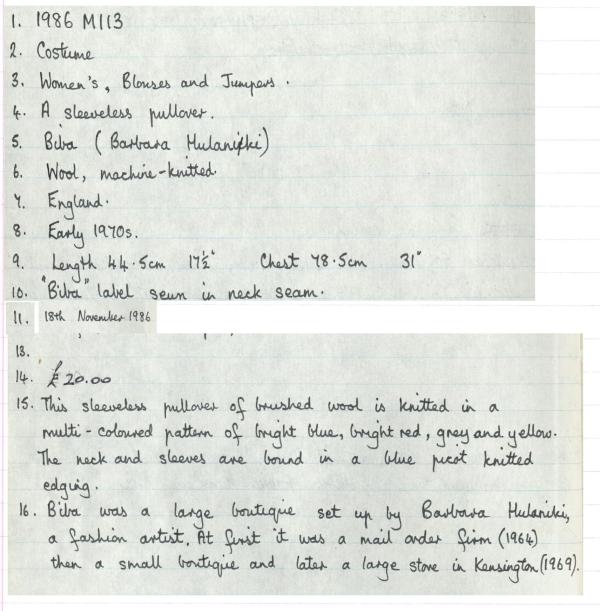 1. 1986 M113
2. Costume
3. Women's, Blouses and Jumpers.
4. A sleeveless pullover.
5. Biba (Barbara Hulanicki)
6. Wool, machine-knitted.
7. England.
8. Early 1970s.
9. Length 44.5cm 17½" Chest 78.5cm 31"
10. "Biba" label sewn in neck seam.
11. 18th November 1986
13.
14. £20.00
15. This sleeveless pullover of brushed wool is knitted in a
multi-coloured pattern of bright blue, bright red, grey and yellow.
The neck and sleeves are bound in a blue picot knitted
edging.
16. Biba was a large boutique set up by Barbara Hulanicki,
a fashion artist. At first it was a mail order firm (1964)
then a small boutique and later a large store in Kensington (1969).